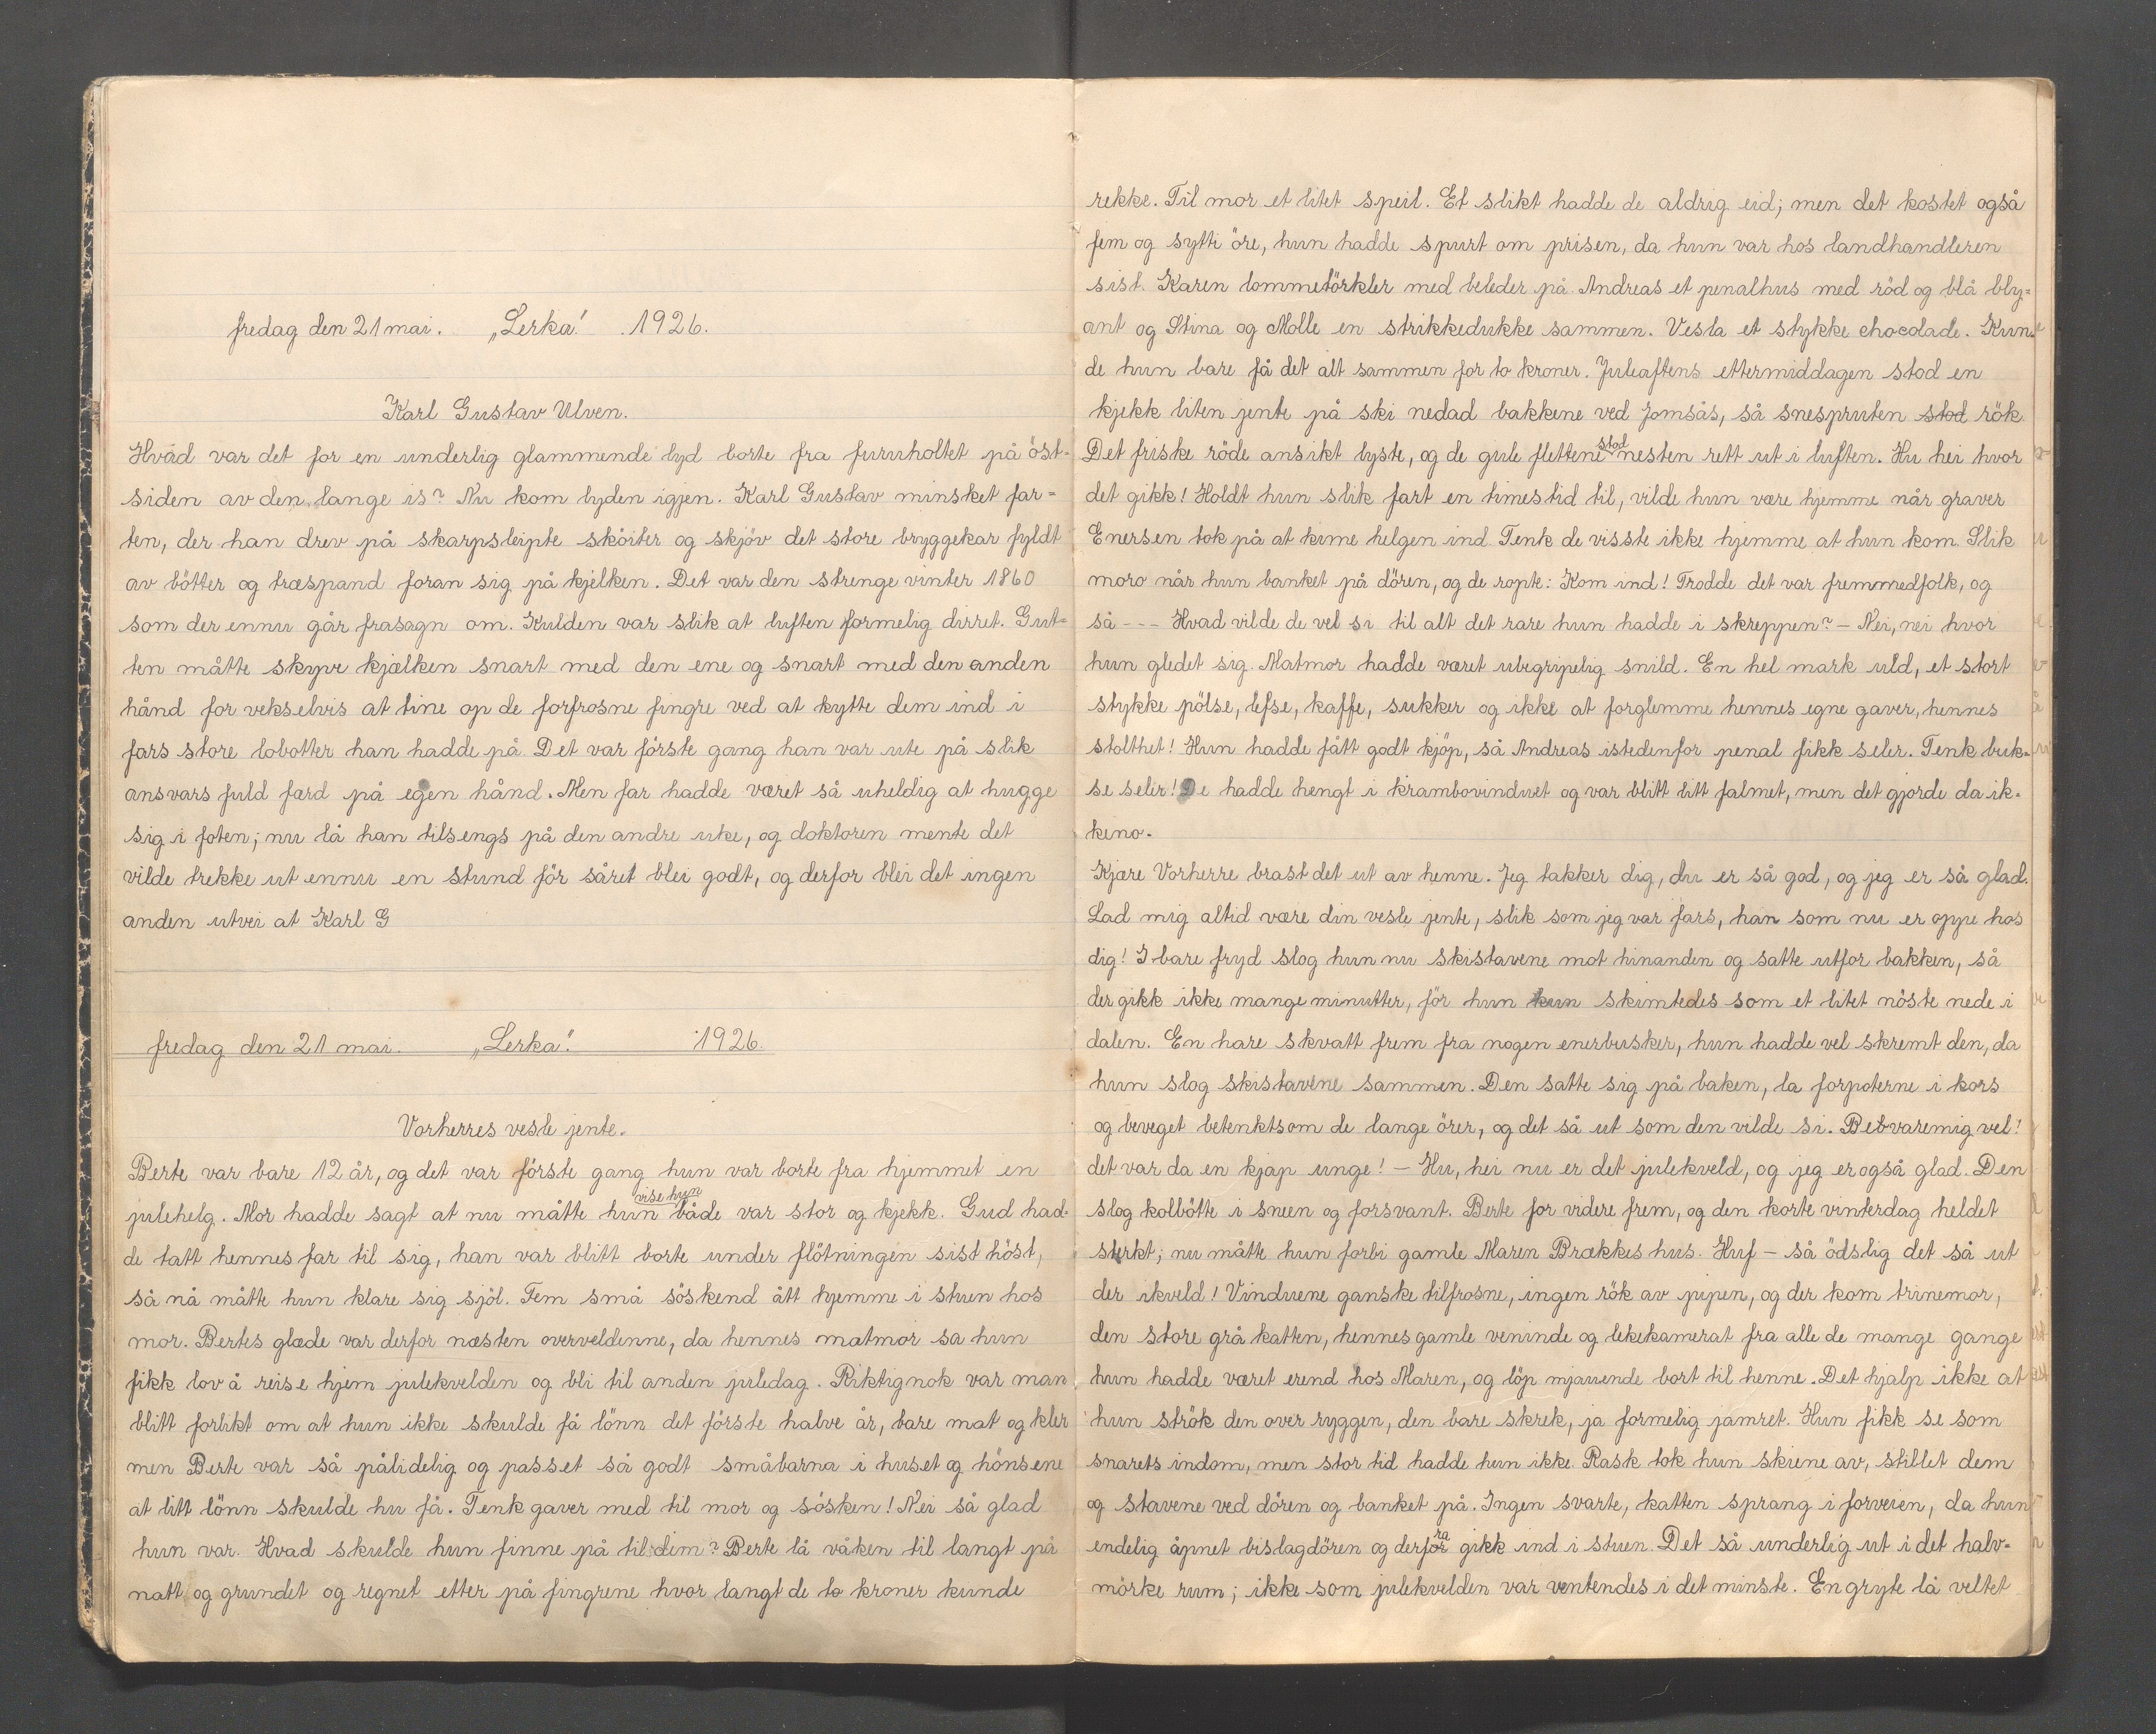 fredag den 21 mai. „Lerka". 1926.
Karl Gustav Ulven.
Hvad var det for en underlig glammende lyd borte fra furuholtet på öst-
siden av den lange is? Nu kom lyden igjen. Karl Gustav minsket far=
ten, der han drev på skarpsleipte sköiter og skjöv det store bryggekar fyldt
av bötter og træspand foran sig på kjelken. Det var den strenge vinter 1860
som der ennu går frasagn om. Kulden var slik at luften formelig dirret. Gut-
ten måtte skyve kjælken snart med den ene og snart med den anden
hånd for vekselvis at tine op de forfrosne fingre ved at kytte dem ind i
fars store lobotter han hadde på. Det var förste gang han var ute på slik
ansvars fuld færd på egen hånd. Men far hadde været så uheldig at hugge
sig i foten; nu lå han tilsengs på den andre uke, og doktoren mente det
vilde trekke ut ennu en stund för såret blei godt, og derfor blei det ingen
anden utvei at Karl G
fredag den 21 mai. „Lerka". 1926.
Vorherres vesle jente.
Berte var bare 12 år, og det var förste gang hun var borte fra hjemmet en
julehelg. Mor hadde sagt at nu måtte hun vise hun både var stor og kjekk. Gud had-
de tatt hennes far til sig, han var blitt borte under flötningen sist höst,
så nå måtte hun klare sig sjöl. Fem små söskend ått hjemme i stuen hos
mor. Bertes glæde var derfor næsten overveldenne, da hennes matmor sa hun
fikk lov å reise hjem julekvelden og bli til anden juledag. Riktignok var man
blitt forlikt om at hun ikke skulde få lönn det förste halve år, bare mat og kler
men Berte var så pålidelig og passet så godt småbarna i huset og hönsene
at litt lönn skulde hu få. Tenk gaver med til mor og sösken! Nei så glad
hun var. Hvad skulde hun finne på til dem? Berte lå våken til langt på
natt og grundet og regnet etter på fingrene hvor langt de to kroner kunde
rekke. Til mor et litet speil. Et slikt hadde de aldrig eid; men det kostet også
fem og sytti öre, hun hadde spurt om prisen, da hun var hos landhandleren
sist. Karen lommetörkler med beleder på. Andreas et penalhus med röd og blå bly=
ant og Stina og Molle en strikkedukke sammen. Vesla et stykke chocolade. Kun-
de hun bare få det alt sammen for to kroner. Juleaftens ettermiddagen stod en
kjekk liten jente på ski nedad bakkene ved Jomsås, så snespruten stod rök.
Det friske röde ansikt lyste, og de gule flettene stod nesten rett ut i luften. Hu hei hvor
det gikk! Holdt hun slik fart en timestid til, vilde hun være hjemme når graver
Enersen tok på at kime helgen ind. Tenk de visste ikke hjemme at hun kom. Slik
moro når hun banket på dören, og de ropte: Kom ind! Trodde det var fremmedfolk, og
så --- Hvad vilde de vel si til alt det rare hun hadde i skreppen? – Nei, nei hvor
hun gledet sig. Matmor hadde været ubegripelig snild. En hel mark uld, et stort
stykke pölse, lefse, kaffe, sukker og ikke at forglemme hennes egne gaver, hennes
stolthet! Hun hadde fått godt kjöp, så Andreas istedenfor penal fikk seler. Tenk buk-
se seler! De hadde hengt i krambovinduet og var blitt litt falmet, men det gjorde da ik-
keno.
Kjære Vorherre brast det ut av henne. Jeg takker dig, du er så god, og jeg er så glad.
Lad mig altid være din vesle jente, slik som jeg var fars, han som nu er oppe hos
dig! I bare fryd slog hun nu skistavene mot hinanden og satte utfor bakken, så
der gikk ikke mange minutter, för hun kun skimtedes som et litet nöste nede i
dalen. En hare skvatt frem fra nogen enerbusker, hun hadde vel skremt den, da
hun slog skistavene sammen. Den satte sig på baken, la forpoterne i kors
og beveget betenktsom de lange örer, og det så ut som den vilde si. Bevaremig vel!
det var da en kjap unge! – Hu, hei nu er det julekveld, og jeg er også glad. Den
slog kolbötte i sneen og forsvant. Berte for videre frem, og den korte vinterdag heldet
sterkt; nu måtte hun forbi gamle Maren Brækkes hus. Huf – så ödslig det så ut
der ikveld! Vinduene ganske tilfrosne, ingen rök av pipen, og der kom trinemor,
den store grå katten, hennes gamle veninde og lekekamerat fra alle de mange gange
hun hadde været erend hos Maren, og löp mjauende bort til henne. Det hjalp ikke at
hun strök den over ryggen, den bare skrek, ja formelig jamret. Hun fikk se som
snarets indom, men stor tid hadde hun ikke. Rask tok hun skiene av, stillet dem
og stavene ved dören og banket på. Ingen svarte, katten sprang i forveien, da hun
endelig åpnet bislagdören og derfra gikk ind i stuen. Det så underlig ut i det halv-
mörke rum; ikke som julekvelden var ventendes i det minste. En gryte lå veltet